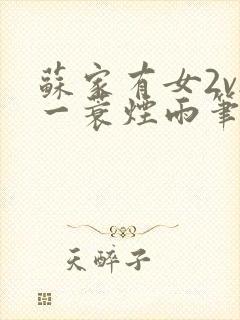 蘇家有女2v
一蓑煙雨筆
天醉子